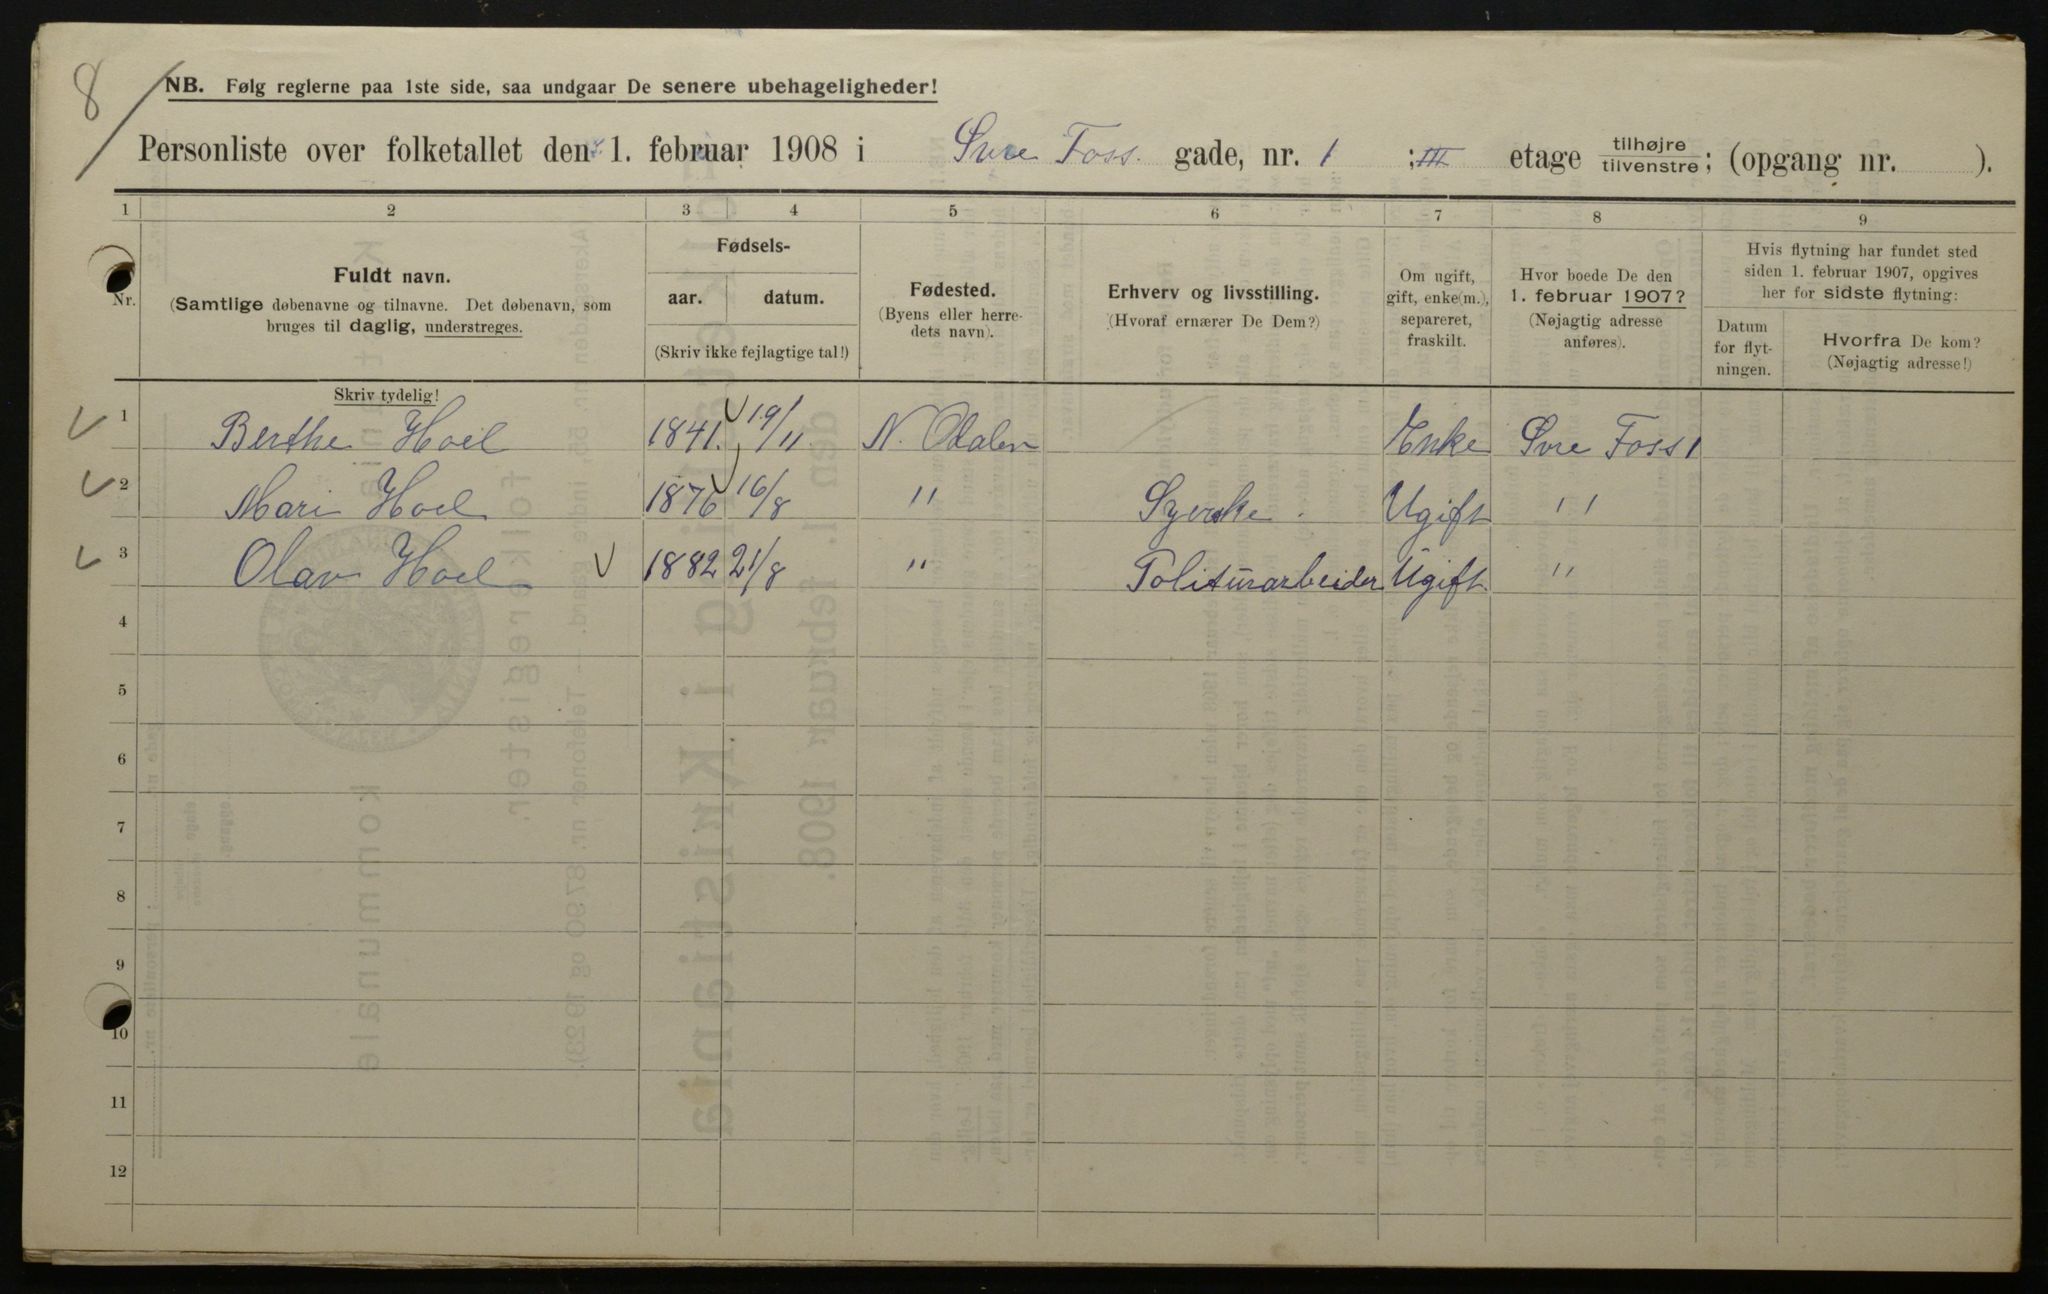 8
NB. Følg reglerne paa 1ste side, saa undgaar De senere ubehageligheder!
Personliste over folketallet den 1. februar 1908 i Øvre Foss. gade, nr. 1 ; III etage tilhøjre tilvenstre; (opgang nr. ).
1 2 3 4 5 6 7 8 9
Nr.
Fuldt navn.
(Samtlige døbenavne og tilnavne. Det døbenavn, som
bruges til daglig, understreges.
Fødsels-
aar. datum.
(Skriv ikke fejlagtige tal!)
Fødested.
(Byens eller herre-
dets navn).
Erhverv og livsstilling.
(Hvoraf ernærer De Dem?)
Om ugift,
gift, enke(m.),
separeret,
fraskilt.
Hvor boede De den
1. februar 1907?
(Nøjagtig adresse
anføres).
Hvis flytning har fundet sted
siden 1. februar 1907, opgives
her for sidste flytning:
Datum
for flyt-
ningen.
Hvorfra De kom?
(Nøjagtig adresse!)
Skriv tydelig!
1 Berthe Hoel 1841. 19/11 N. Odalen Enke Øvre Foss 1
2 Mari Hoel 1876 16/8 " Syerske. Ugift "
3 Olav Hoel 1882 21/8 " Politurarbeider Ugift "
4
5
6
7
8
9
10
11
12